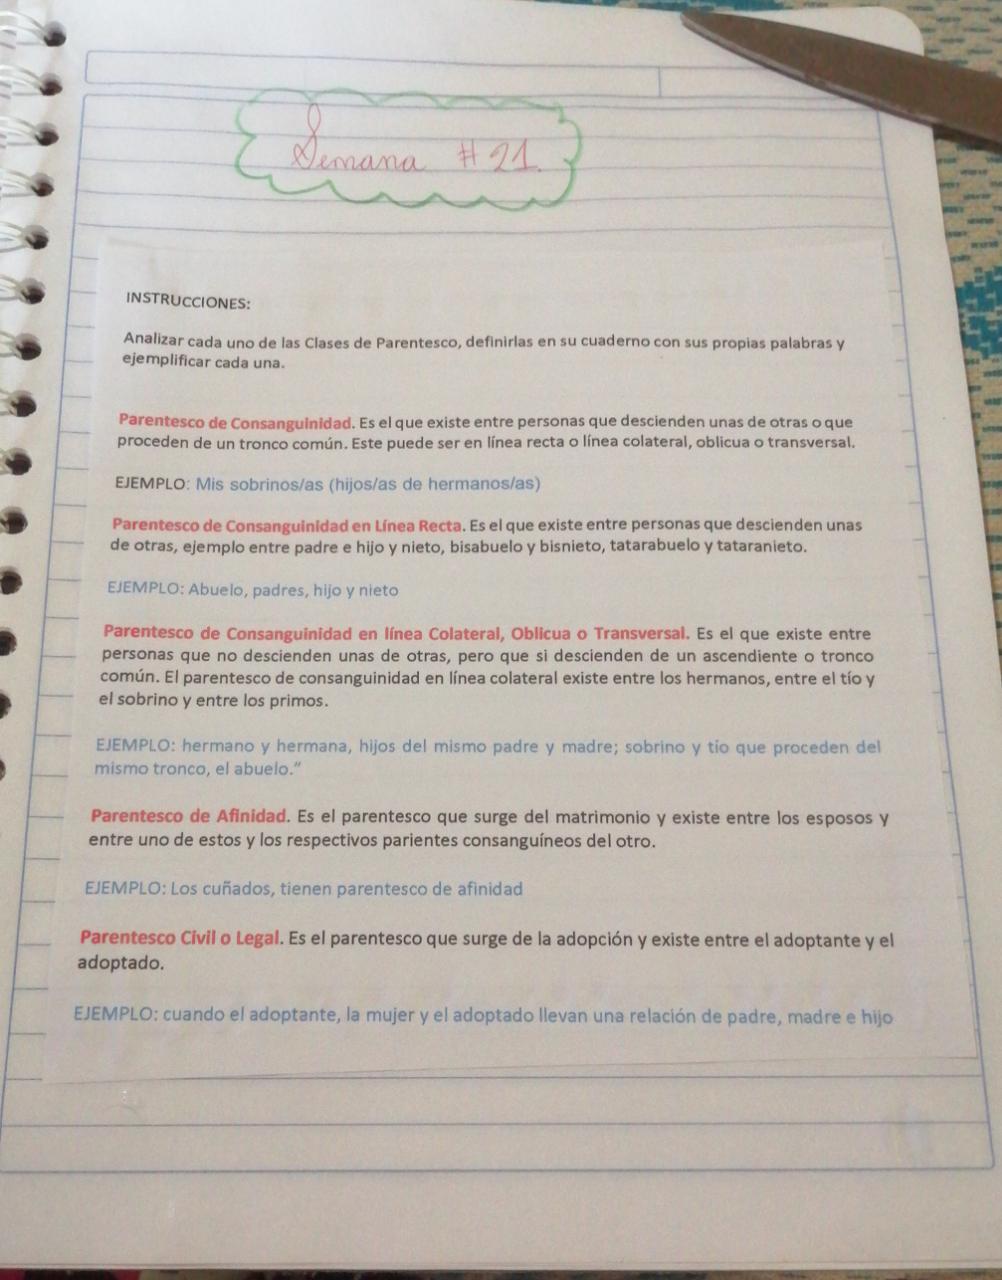 Semana # 21.
INSTRUCCIONES:
Analizar cada uno de las Clases de Parentesco, definirlas en su cuaderno con sus propias palabras y
ejemplificar cada una.
Parentesco de Consanguinidad. Es el que existe entre personas que descienden unas de otras o que
proceden de un tronco común. Este puede ser en línea recta o línea colateral, oblicua o transversal.
EJEMPLO: Mis sobrinos/as (hijos/as de hermanos/as)
Parentesco de Consanguinidad en Línea Recta. Es el que existe entre personas que descienden unas
de otras, ejemplo entre padre e hijo y nieto, bisabuelo y bisnieto, tatarabuelo y tataranieto.
EJEMPLO: Abuelo, padres, hijo y nieto
Parentesco de Consanguinidad en línea Colateral, Oblicua o Transversal. Es el que existe entre
personas que no descienden unas de otras, pero que si descienden de un ascendiente o tronco
común. El parentesco de consanguinidad en línea colateral existe entre los hermanos, entre el tío y
el sobrino y entre los primos.
EJEMPLO: hermano y hermana, hijos del mismo padre y madre; sobrino y tío que proceden del
mismo tronco, el abuelo.”
Parentesco de Afinidad. Es el parentesco que surge del matrimonio y existe entre los esposos y
entre uno de estos y los respectivos parientes consanguíneos del otro.
EJEMPLO: Los cuñados, tienen parentesco de afinidad
Parentesco Civil o Legal. Es el parentesco que surge de la adopción y existe entre el adoptante y el
adoptado.
EJEMPLO: cuando el adoptante, la mujer y el adoptado llevan una relación de padre, madre e hijo